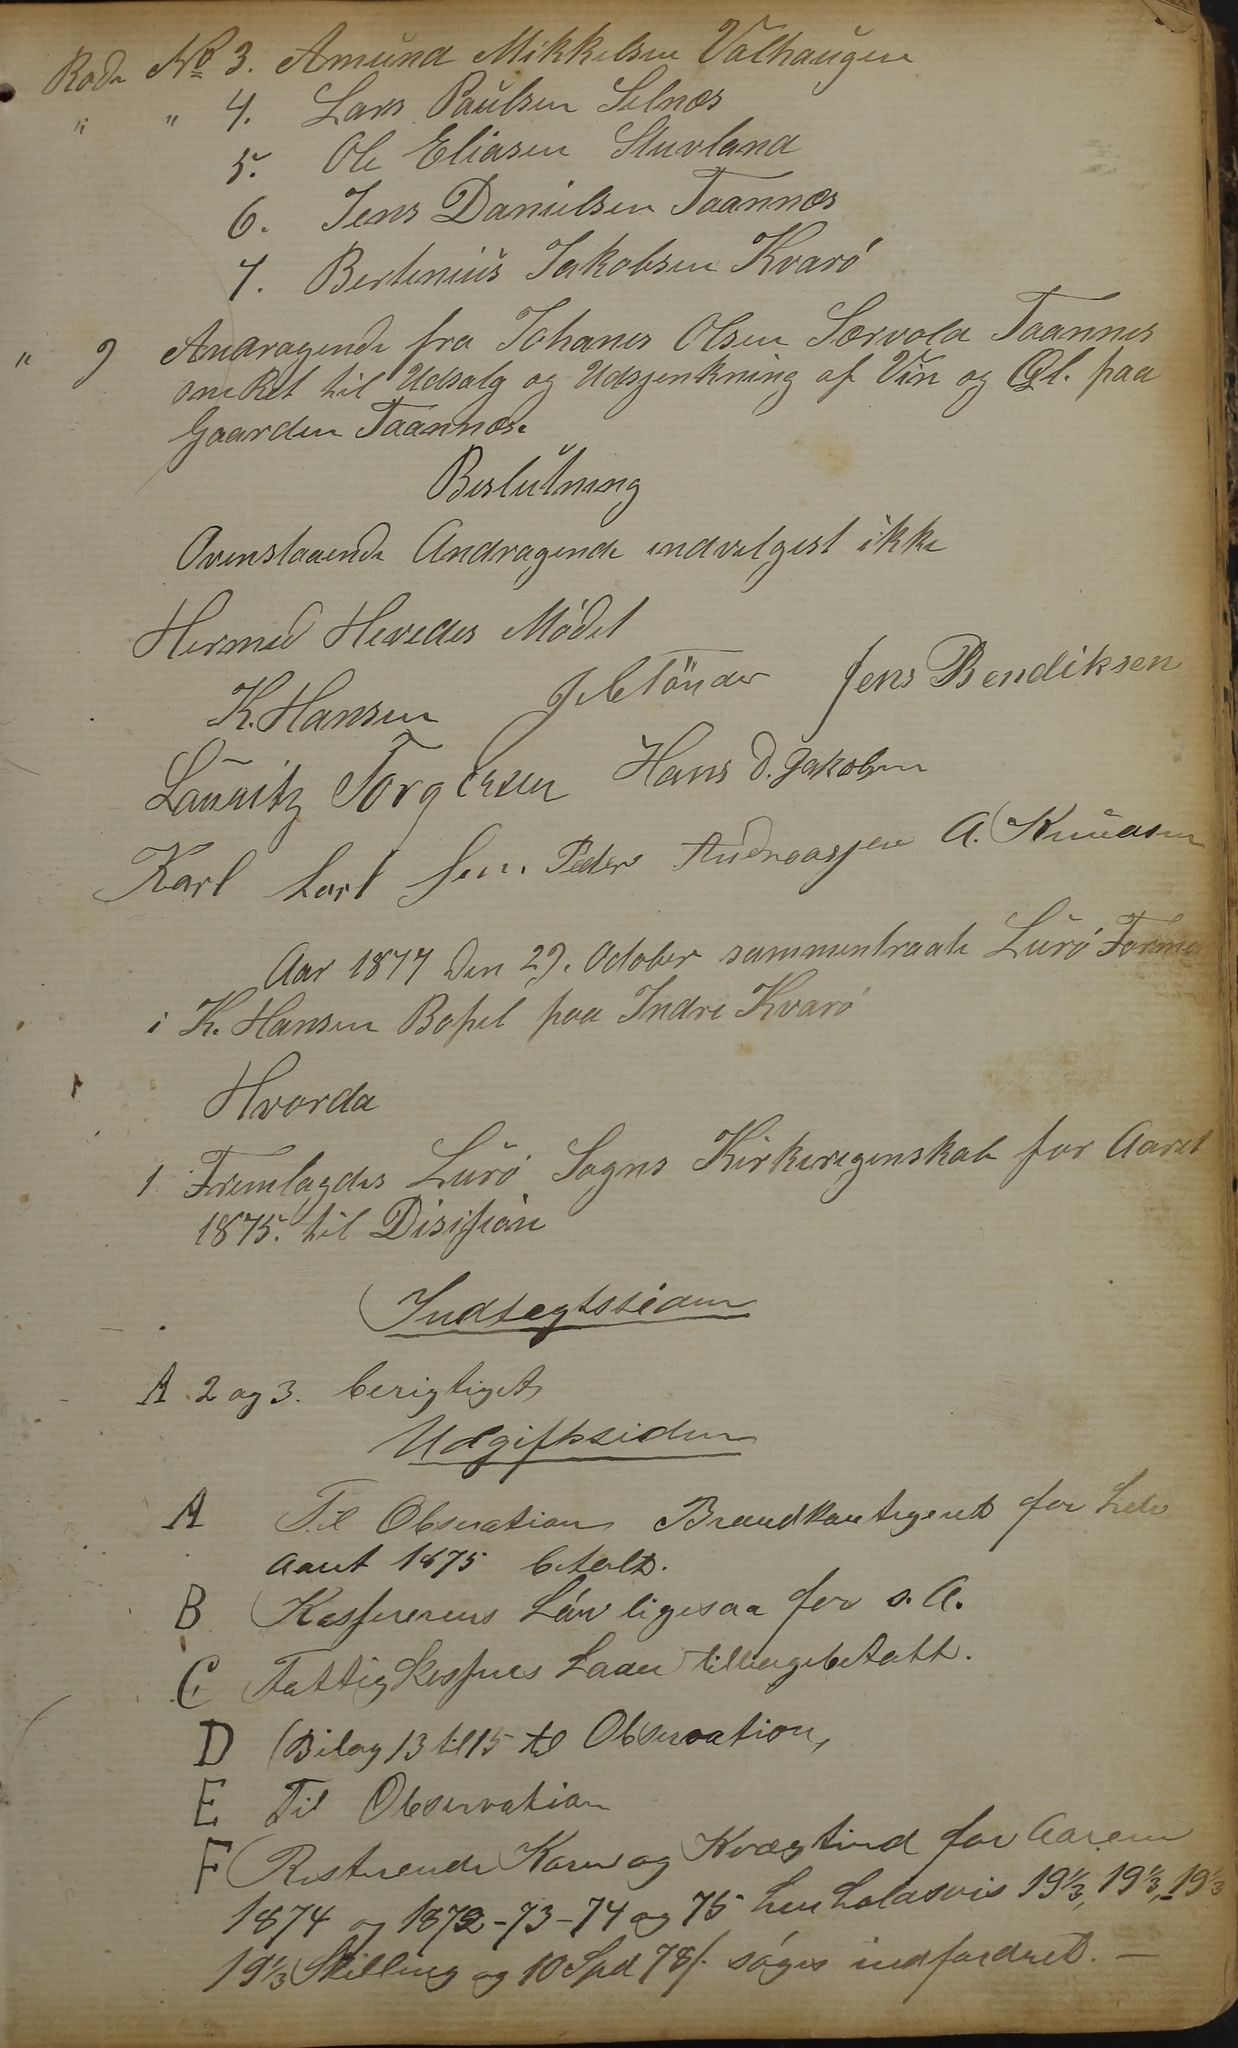 Rode No 3. Amund Mikkelsen Valhaugen
" " 4. Lars Paulsen Selnæs
5. Ole Eliasen Stuvland
6. Jens Danielsen Taannæs
7. Bertenius Jakobsen Kvarö
" 9 Andragende fra Johanes Olsen Sørvold Taannes
om Ret til Udsalg og Udsjenkning af Vin og Øl. paa
Gaarden Taannæs.
Beslutning
Ovenstaaende Andragende indvelgest ikke
Hermed Hevedes Mödet
K. Hansen Tönder Jens Bendiksen
Lauritz Torgersen Hans D. Jakobsen
Karl Peder Andreassen A. Knudsen
Aar 1877 den 29. October sammentraate Lurö Forme
i K. Hansen Bopel paa Indre Kvarö
Hvorda
1 Fremlagdes Lurö Sogns Kirkeregenskab for Aaret
1875. til Disisjion
Indtegtssiden
A 2 og 3. berigtiget
Udgiftssiden
A Til Observation Brandkontigent for hele
Aaret 1875 betalt.
B Kassererens Lön ligesaa for s. A.
C Fattigkassens Laan tilbagebetalt.
D Bilag 13 til 15 til Observation,
E Til Observation
F Resterende Korn og Kvægtiend for Aarene
1874 og 1872-73-74 og 75 henholdsvis 19⅓, 19⅓, 19⅓
19⅓ Skilling og 10 Spd 78/. söges indfordret. —